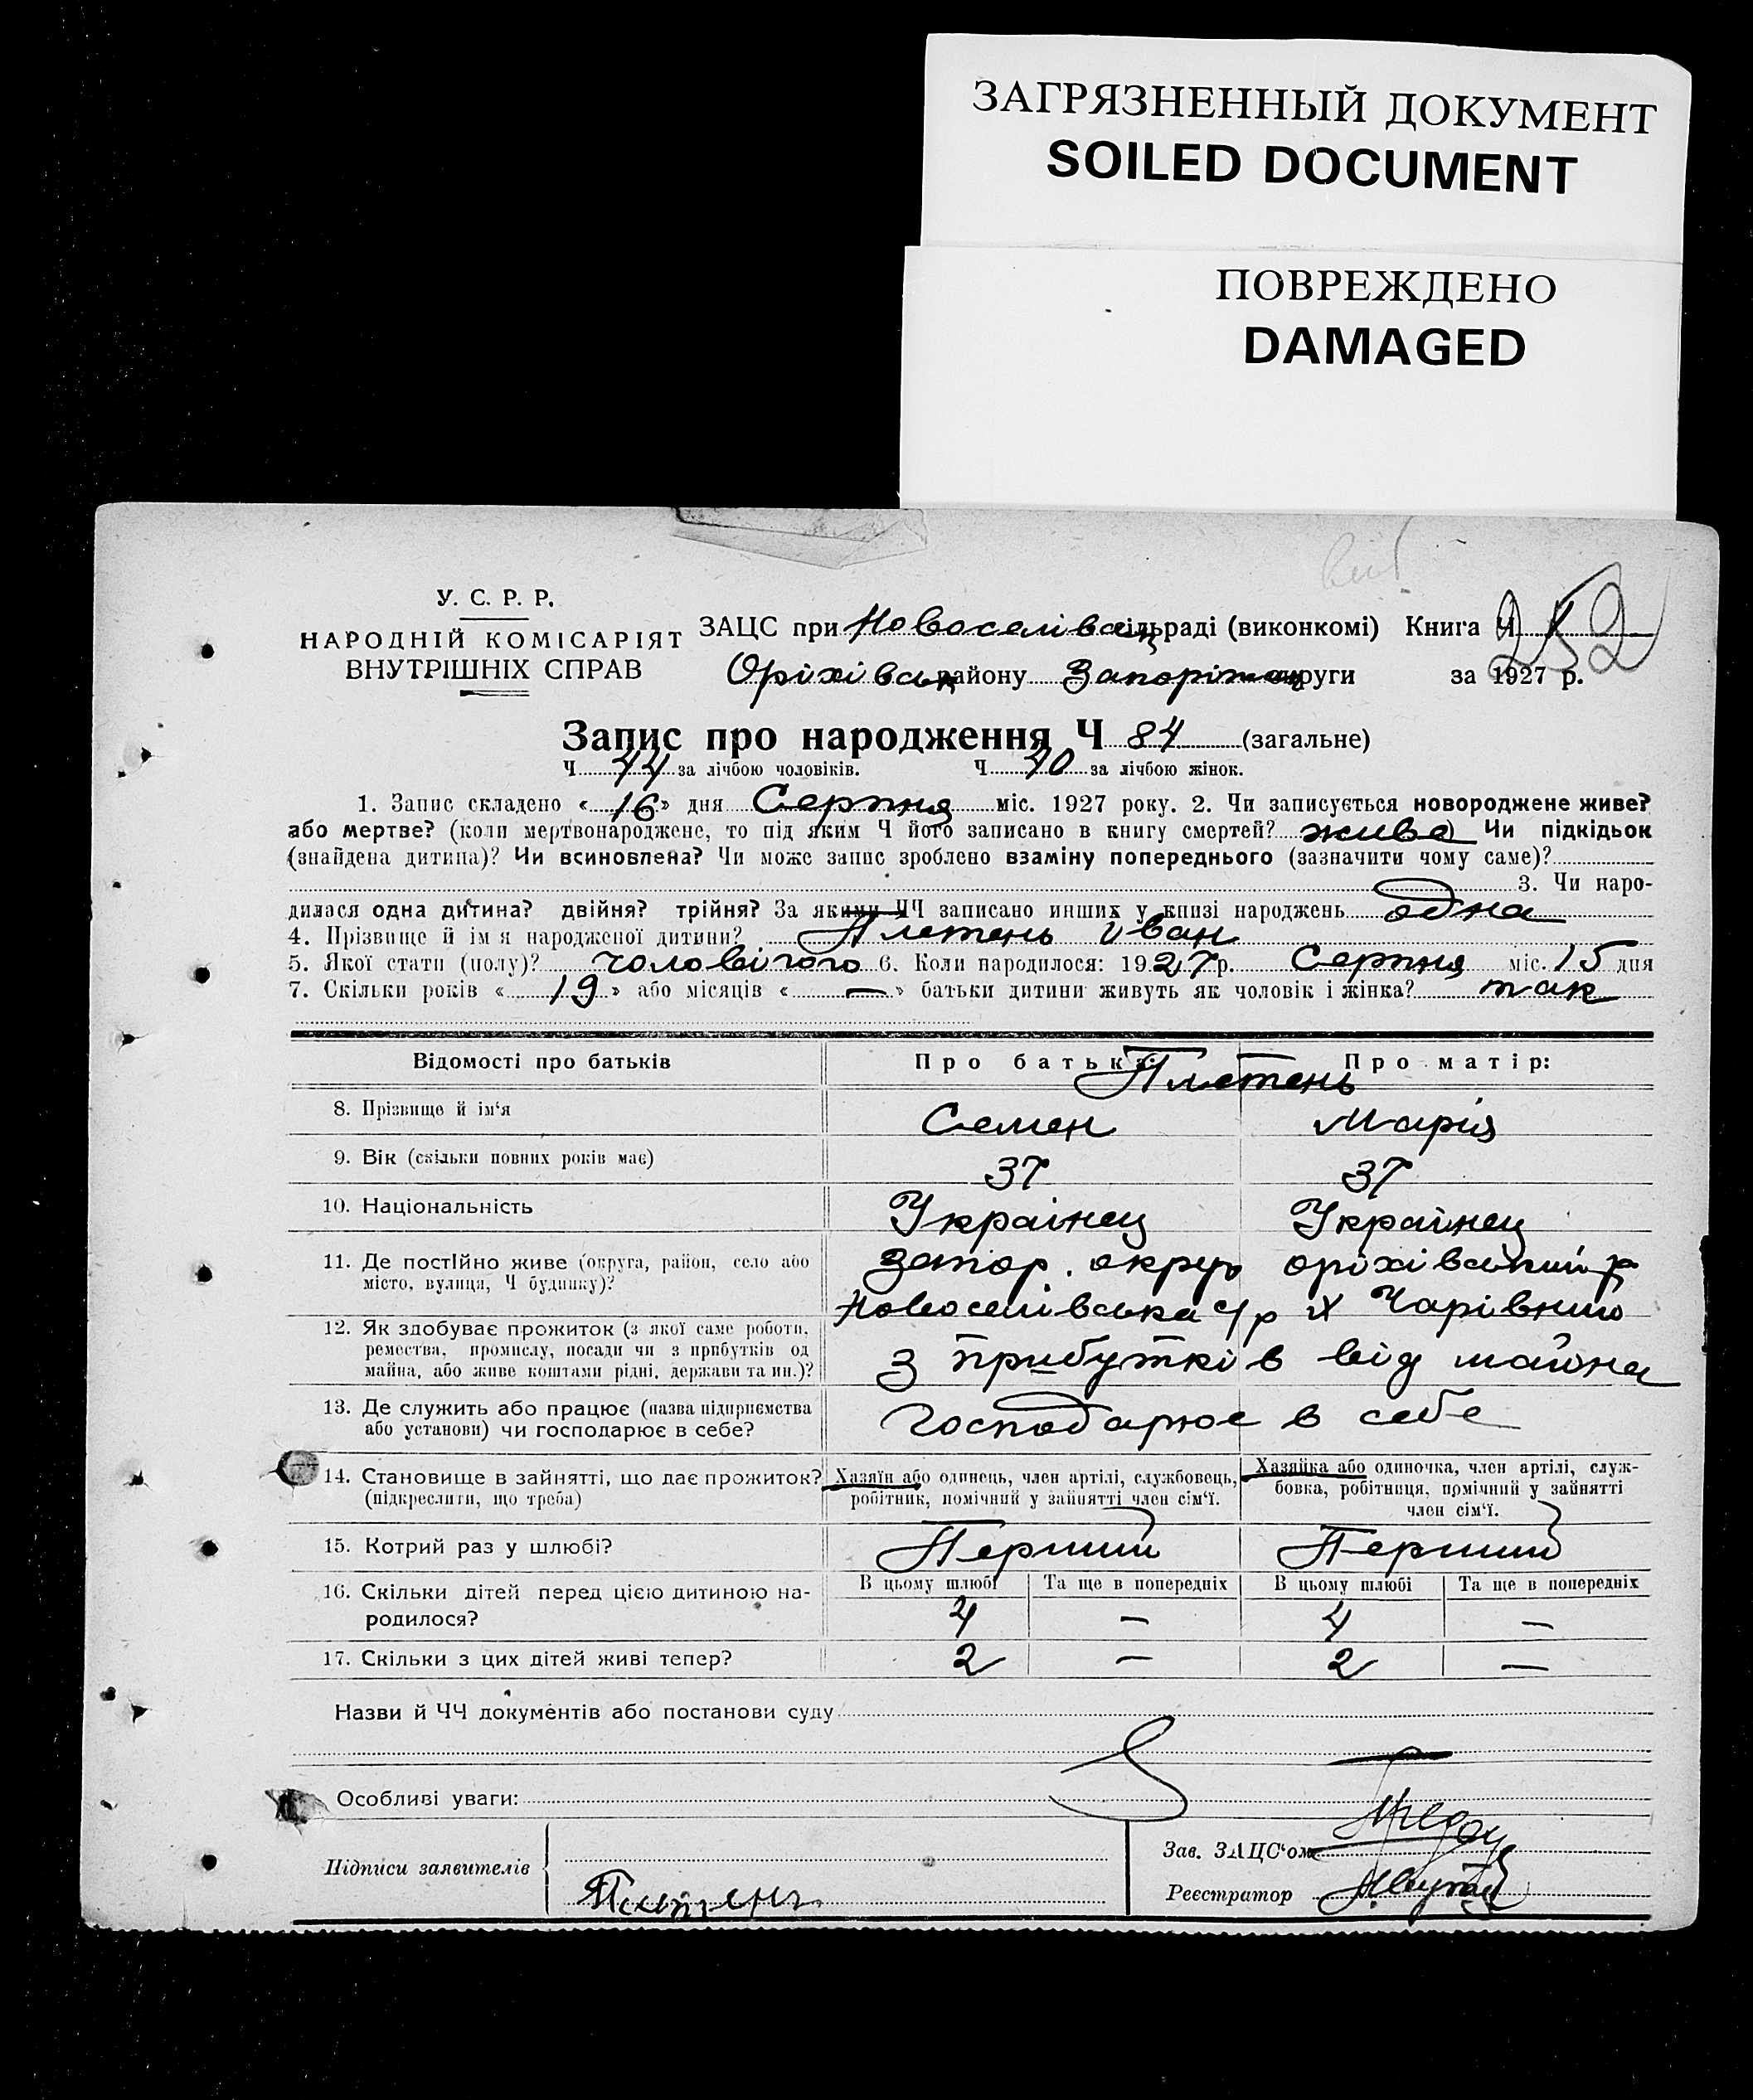 ЗАГРЯЗНЕННЫЙ ДОКУМЕНТ
SOILED DOCUMENT
ПОВРЕЖДЕНО
DAMAGED
252
У. С. Р. Р.
НАРОДНІЙ КОМІСАРІЯТ
ВНУТРІШНІХ СПРАВ
ЗАЦС при Новоселівськ сільраді (виконкомі) Книга Ч 1
Оріхівськ району Запоріжськ округи за 1927 р.
Запис про народження Ч 84 (загальне)
Ч 44 за лічбою чоловіків. Ч 40 за лічбою жінок.
1. Запис складено « 16 » дня Серпня міс. 1927 року. 2. Чи записується новороджене живе?
або мертве? (коли мертвонароджене, то під яким Ч його записано в книгу смертей? живе) Чи підкідьок
(знайдена дитина)? Чи всиновлена? Чи може запис зроблено взаміну попереднього (зазначити чому саме)?
3. Чи наро-
дилася одна дитина? двійня? трійня? За якими ЧЧ записано инших у книзі народжень одна
4. Прізвище й імя народженої дитини? Плетень Іван
5. Якої стати (полу)? чоловічого 6. Коли народилося: 1927 р. Серпня міс. 15 дня
7. Скільки років « 19 » або місяців « — » батьки дитини живуть як чоловік і жінка? так
Відомості про батьків Про батька: Про матір:
Плетень
8. Прізвище й ім‘я Семен Марія
9. Вік (скільки повних років має) 37 37
10. Національність Українец Українец
11. Де постійно живе (округа, район, село або
місто, вулиця, Ч будинку)?
Запор. округ оріхівський р
Новоселівська с/р х Чарівний
12. Як здобуває прожиток (з якої саме роботи,
ремества, промислу, посади чи з прибутків од
майна, або живе коштами рідні, держави та ин.)?
з прибутків від майна
13. Де служить або працює (назва підприємства
або установи) чи господарює в себе?
Господарює в себе
14. Становище в зайнятті, що дає прожиток?
(підкреслити, що треба)
Хазяїн або одинець, член артілі, службовець,
робітник, помічний у зайнятті член сім‘ї.
Хазяйка або одиночка, член артілі, служ-
бовка, робітниця, помічний у зайнятті
член сім‘ї.
15. Котрий раз у шлюбі? Перший Перший
16. Скільки дітей перед цією дитиною на-
родилося?
В цьому шлюбі Та ще в попередніх В цьому шлюбі Та ще в попередніх
4 — 4 —
17. Скільки з цих дітей живі тепер? 2 — 2 —
Назви й ЧЧ документів або постанови суду
Особливі уваги:
Підписи заявителів
Плетень
Зав. ЗАЦС‘ом
Реєстратор